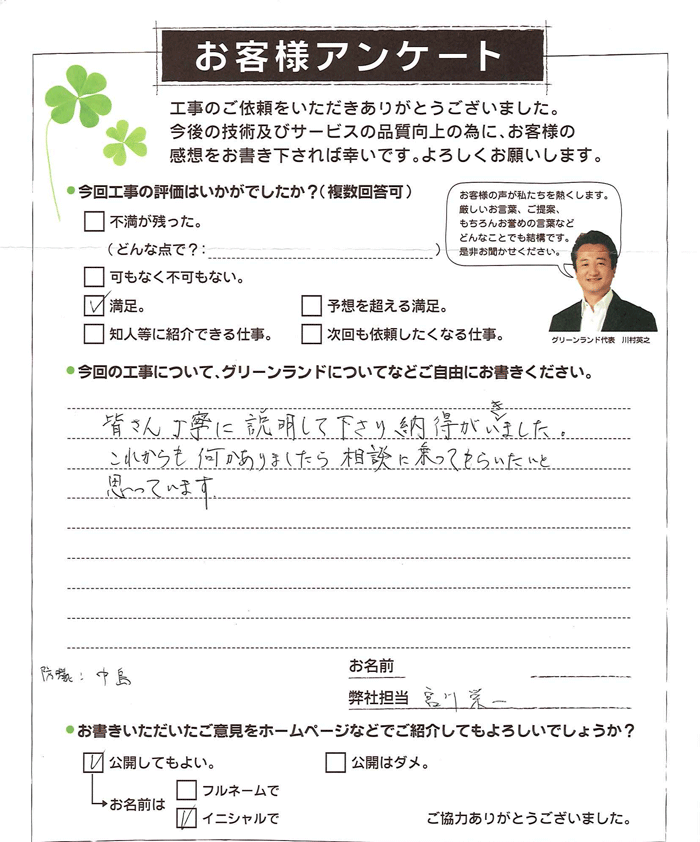 お客様アンケート
工事のご依頼をいただきありがとうございました。
今後の技術及びサービスの品質向上の為に、お客様の
感想をお書き下されば幸いです。よろしくお願いします。
●今回工事の評価はいかがでしたか？（複数回答可）
お客様の声が私たちを熱くします。
厳しいお言葉、ご提案、
もちろんお誉めの言葉など
どんなことでも結構です。
是非お聞かせください。
不満が残った。
（どんな点で？：）
可もなく不可もない。
満足。
予想を超える満足。
知人等に紹介できる仕事。
次回も依頼したくなる仕事。
グリーンランド代表 川村英之
●今回の工事について、グリーンランドについてなどご自由にお書きください。
皆さん丁寧に説明して下さり納得がいきました。
これからも何かありましたら相談に乗ってもらいたいと
思っています。
お名前
中島
弊社担当 宮川栄一
●お書きいただいたご意見をホームページなどでご紹介してもよろしいでしょうか？
公開してもよい。
公開はダメ。
お名前は
フルネームで
イニシャルで
ご協力ありがとうございました。